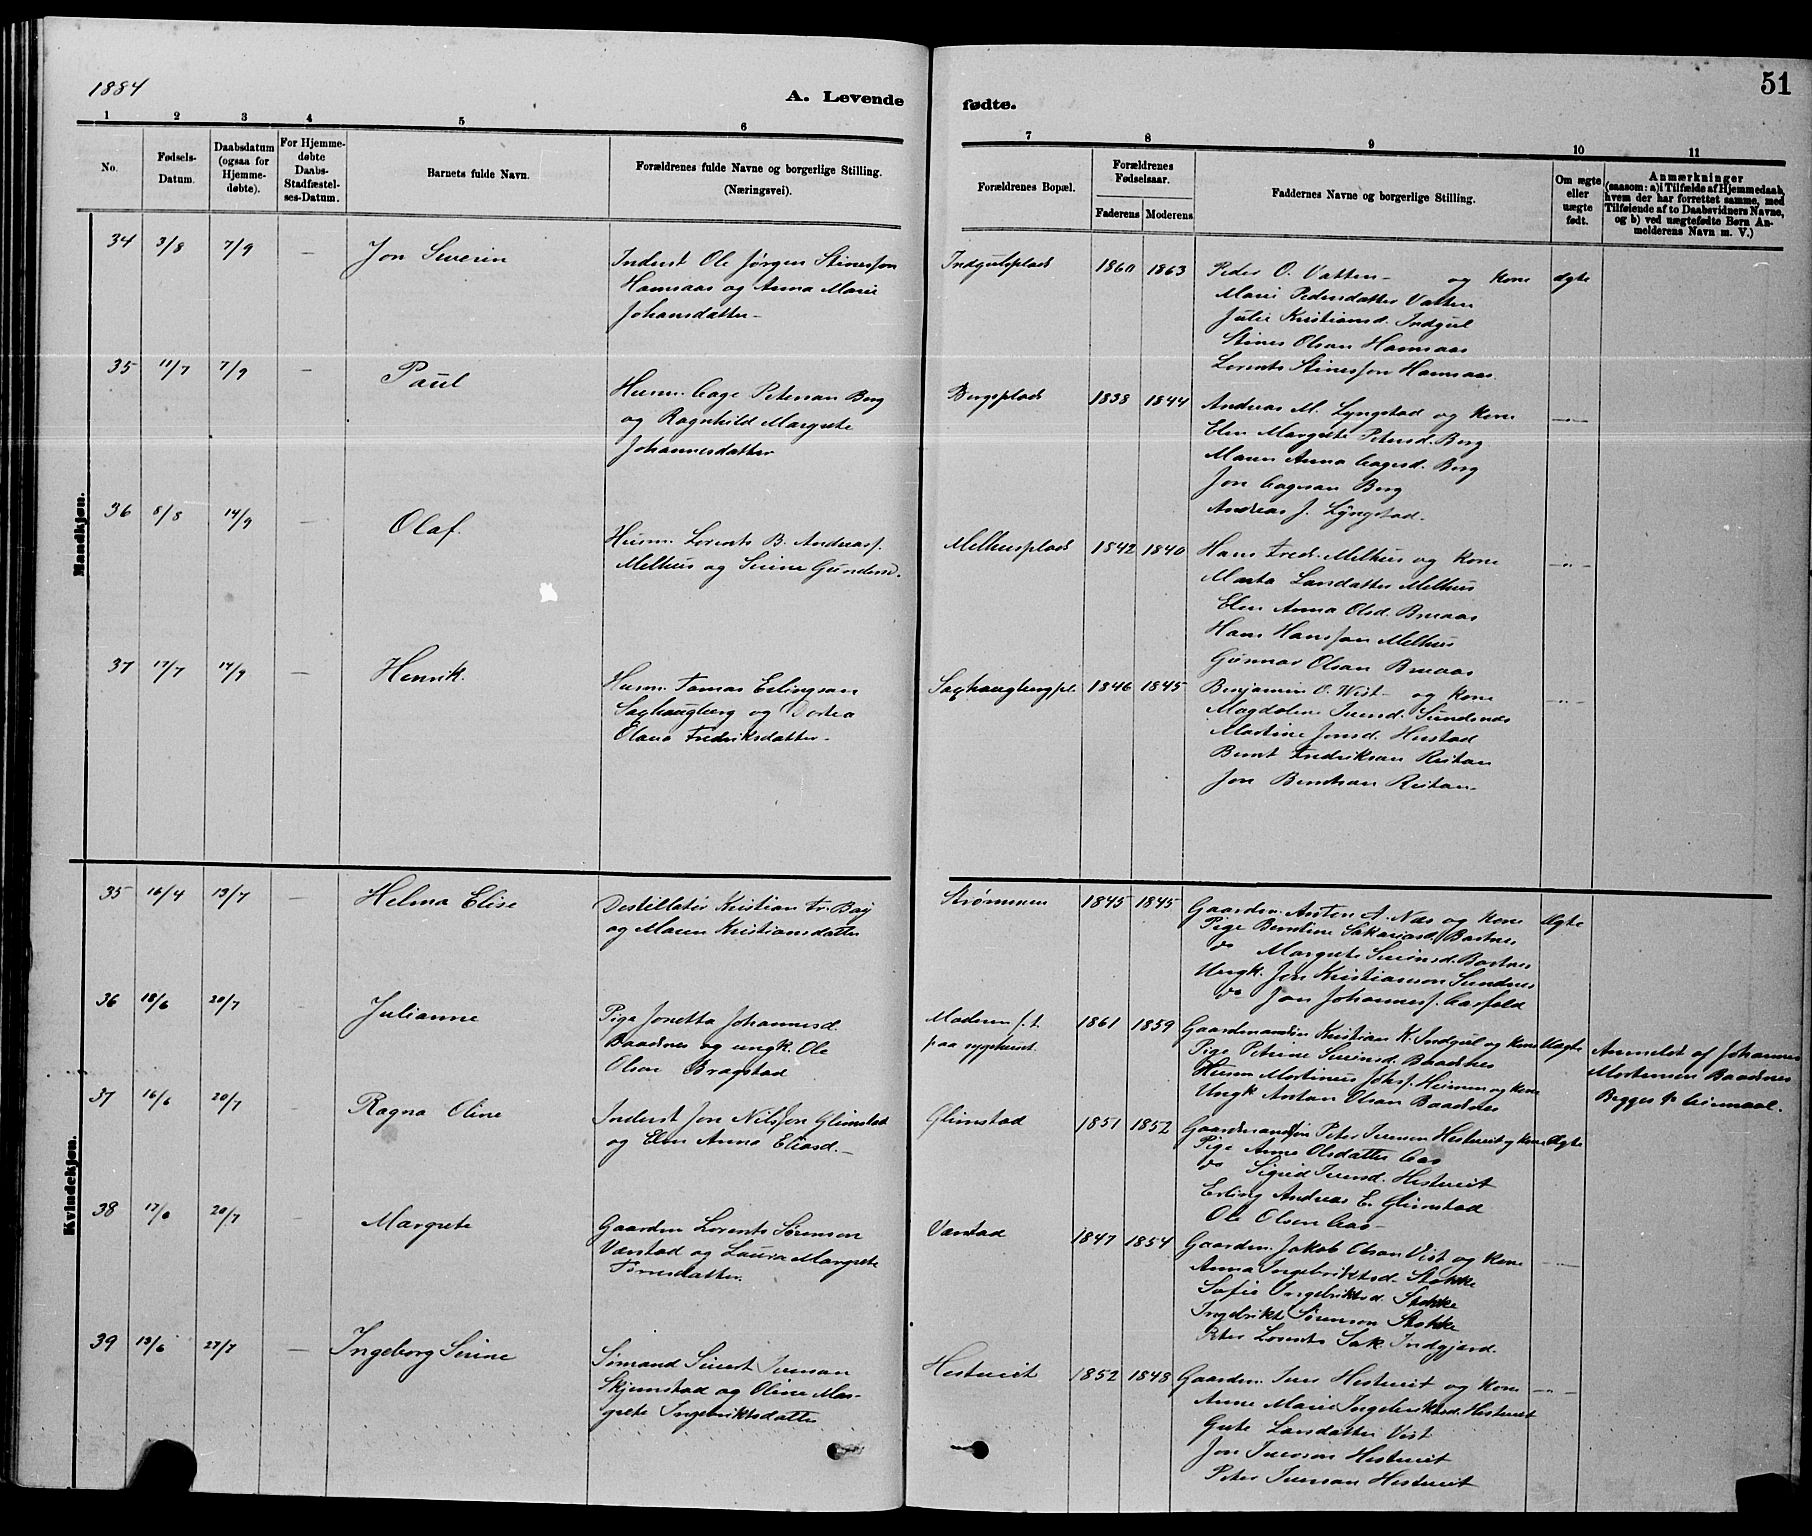 1884
A. Levende
fødte.
51
1 2 3 4 5 6 7 8 9 10 11
No.
Fødsels-
Datum.
Daabsdatum
(ogsaa for
Hjemme-
døbte).
For Hjemme-
døbte
Daabs-
Stadfæstel-
ses-Datum.
Barnets fulde Navn.
Forældrenes fulde Navne og borgerlige Stilling.
(Næringsvei).
Forældrenes Bopæl.
Forældrenes
Fødselsaar.
Faderens Moderens
Faddernes Navne og borgerlige Stilling.
Om ægte
eller
uægte
født.
Anmærkninger
(saasom: a) i Tilfælde af Hjemmedaab,
hvem der har forrettet samme, med
Tilføiende af to Daabsvidners Navne,
og b) ved uægtefødte Børn An-
melderens Navn m. V.)
Mandkjøn.
34 3/8 7/9 — Jon Severin
Inderst Ole Jørgen Stinesson
Hamsaas og Anna Marie
Johansdatter -
Indgulsplads 1860 1863
Peder O. Vatten - og Kone ægte
Marie Pedersdatter Vatten
Julie Kristiansd. Indgul
Stines Olsen Hamsaas
Lorents Stinesson Hamsaas.
35 11/7 7/9 — Paul
Husm. Aage Petersen Berg
og Ragnhild Margrete
Johannesdatter
Bergsplads 1838 1844
Andreas M. Lyngstad og Kone — " —
Elen Margrete Petersd. Berg
Maren Anna Aagesd. Berg
Jon Aagesen Berg
Andreas J. Lyngstad.
36 8/8 14/9 — Olaf.
Husm. Lorents B. Andreasf.
Melhus og Serine Gundersd.
Melhusplads 1842 1840
Hans Fred. Melhus og Kone — " —
Marta Larsdatter Melhus
Elen Anna Olsd. Bruaas
Hans Hansson Melhus
Gunnar Olsen Bruaas
37 17/7 14/9 — Henrik.
Husm. Tomas Erlingsen
Saxhaugberg og Dortea
Olava Fredriksdatter -
Saxhaugbergpl. 1846 1845
Benjamin O. Vist - og Kone — " —
Magdalene Iversd. Sundsnes
Martine Jonsd. Hustad
Bernt Fredriksen Ristan
Jon Berntsen Ristan.
Kvindekjøn.
35 16/4 13/7 — Helma Elise
Destillatør Kristian Fr. Boy
og Maren Kristiansdatter
Strømmen 1845 1845
Gaardm. Anton A. Næs og Kone Ægte
Pige Berntine Sakariasd. Bartnes
do Margrete Severinsd. Bartnes
Ungk. Jon Kristianson Sundnes
do Jon Johannesf. Aasfald
36 18/6 20/7 Julianne
Pige Jonetta Johannesd.
Baadnes og ungk. Ole
Olsen Bragstad
Moderen f. t.
paa sygehuset.
1861 1859
Gaardmanden Kristian K. Indgul og Kone Uægte
Pige Petrine Severinsd. Baadnes
Husm Martinus Johsf. Heimen og Kone
Ungk Anton Olsen Baadnes
Anmeldt af Johannes
Mortensen Baadnes
Begges 1ste Leiermaal.
37 16/6 20/7 Ragna Oline
Inderst Jon Nilsson Glimstad
og Elen Anna Eliasd. -
Glimstad 1851 1852
Gaardmanden Peter Iversen Hestveit og Kone Ægte
Pige Anne Olsdatter Aas
do Sigrid Iversd. Hestveit
Erling Andreas E. Glimstad
Ole Olsen Aas -
38 17/6 20/7 Margrete
Gaardm Lorents Sørensen
Vanstad og Laura Margrete
Tørresdatter.
Vanstad 1847 1854
Gaardm. Jakob Olsen Vist og Kone — " —
Anna Ingebriktsd. Stokke
Sofie Ingebriktsd. Stokke
Ingebrikt Sørenson Stokke
Peter Lorents Sak. Indgjærd.
39 13/6 27/7 — Ingeborg Serine
Sømand Sivert Iversen
Skjemstad og Oline Mar-
grete Ingebriktsdatter
Hestveit 1852 1848
Gaardm. Iver Hestveit og Kone — " —
Anne Marie Ingebriktsd. Hestveit
Gurte Larsdatter Vist
Jon Iverson Hestveit
Peter Iversen Hestveit